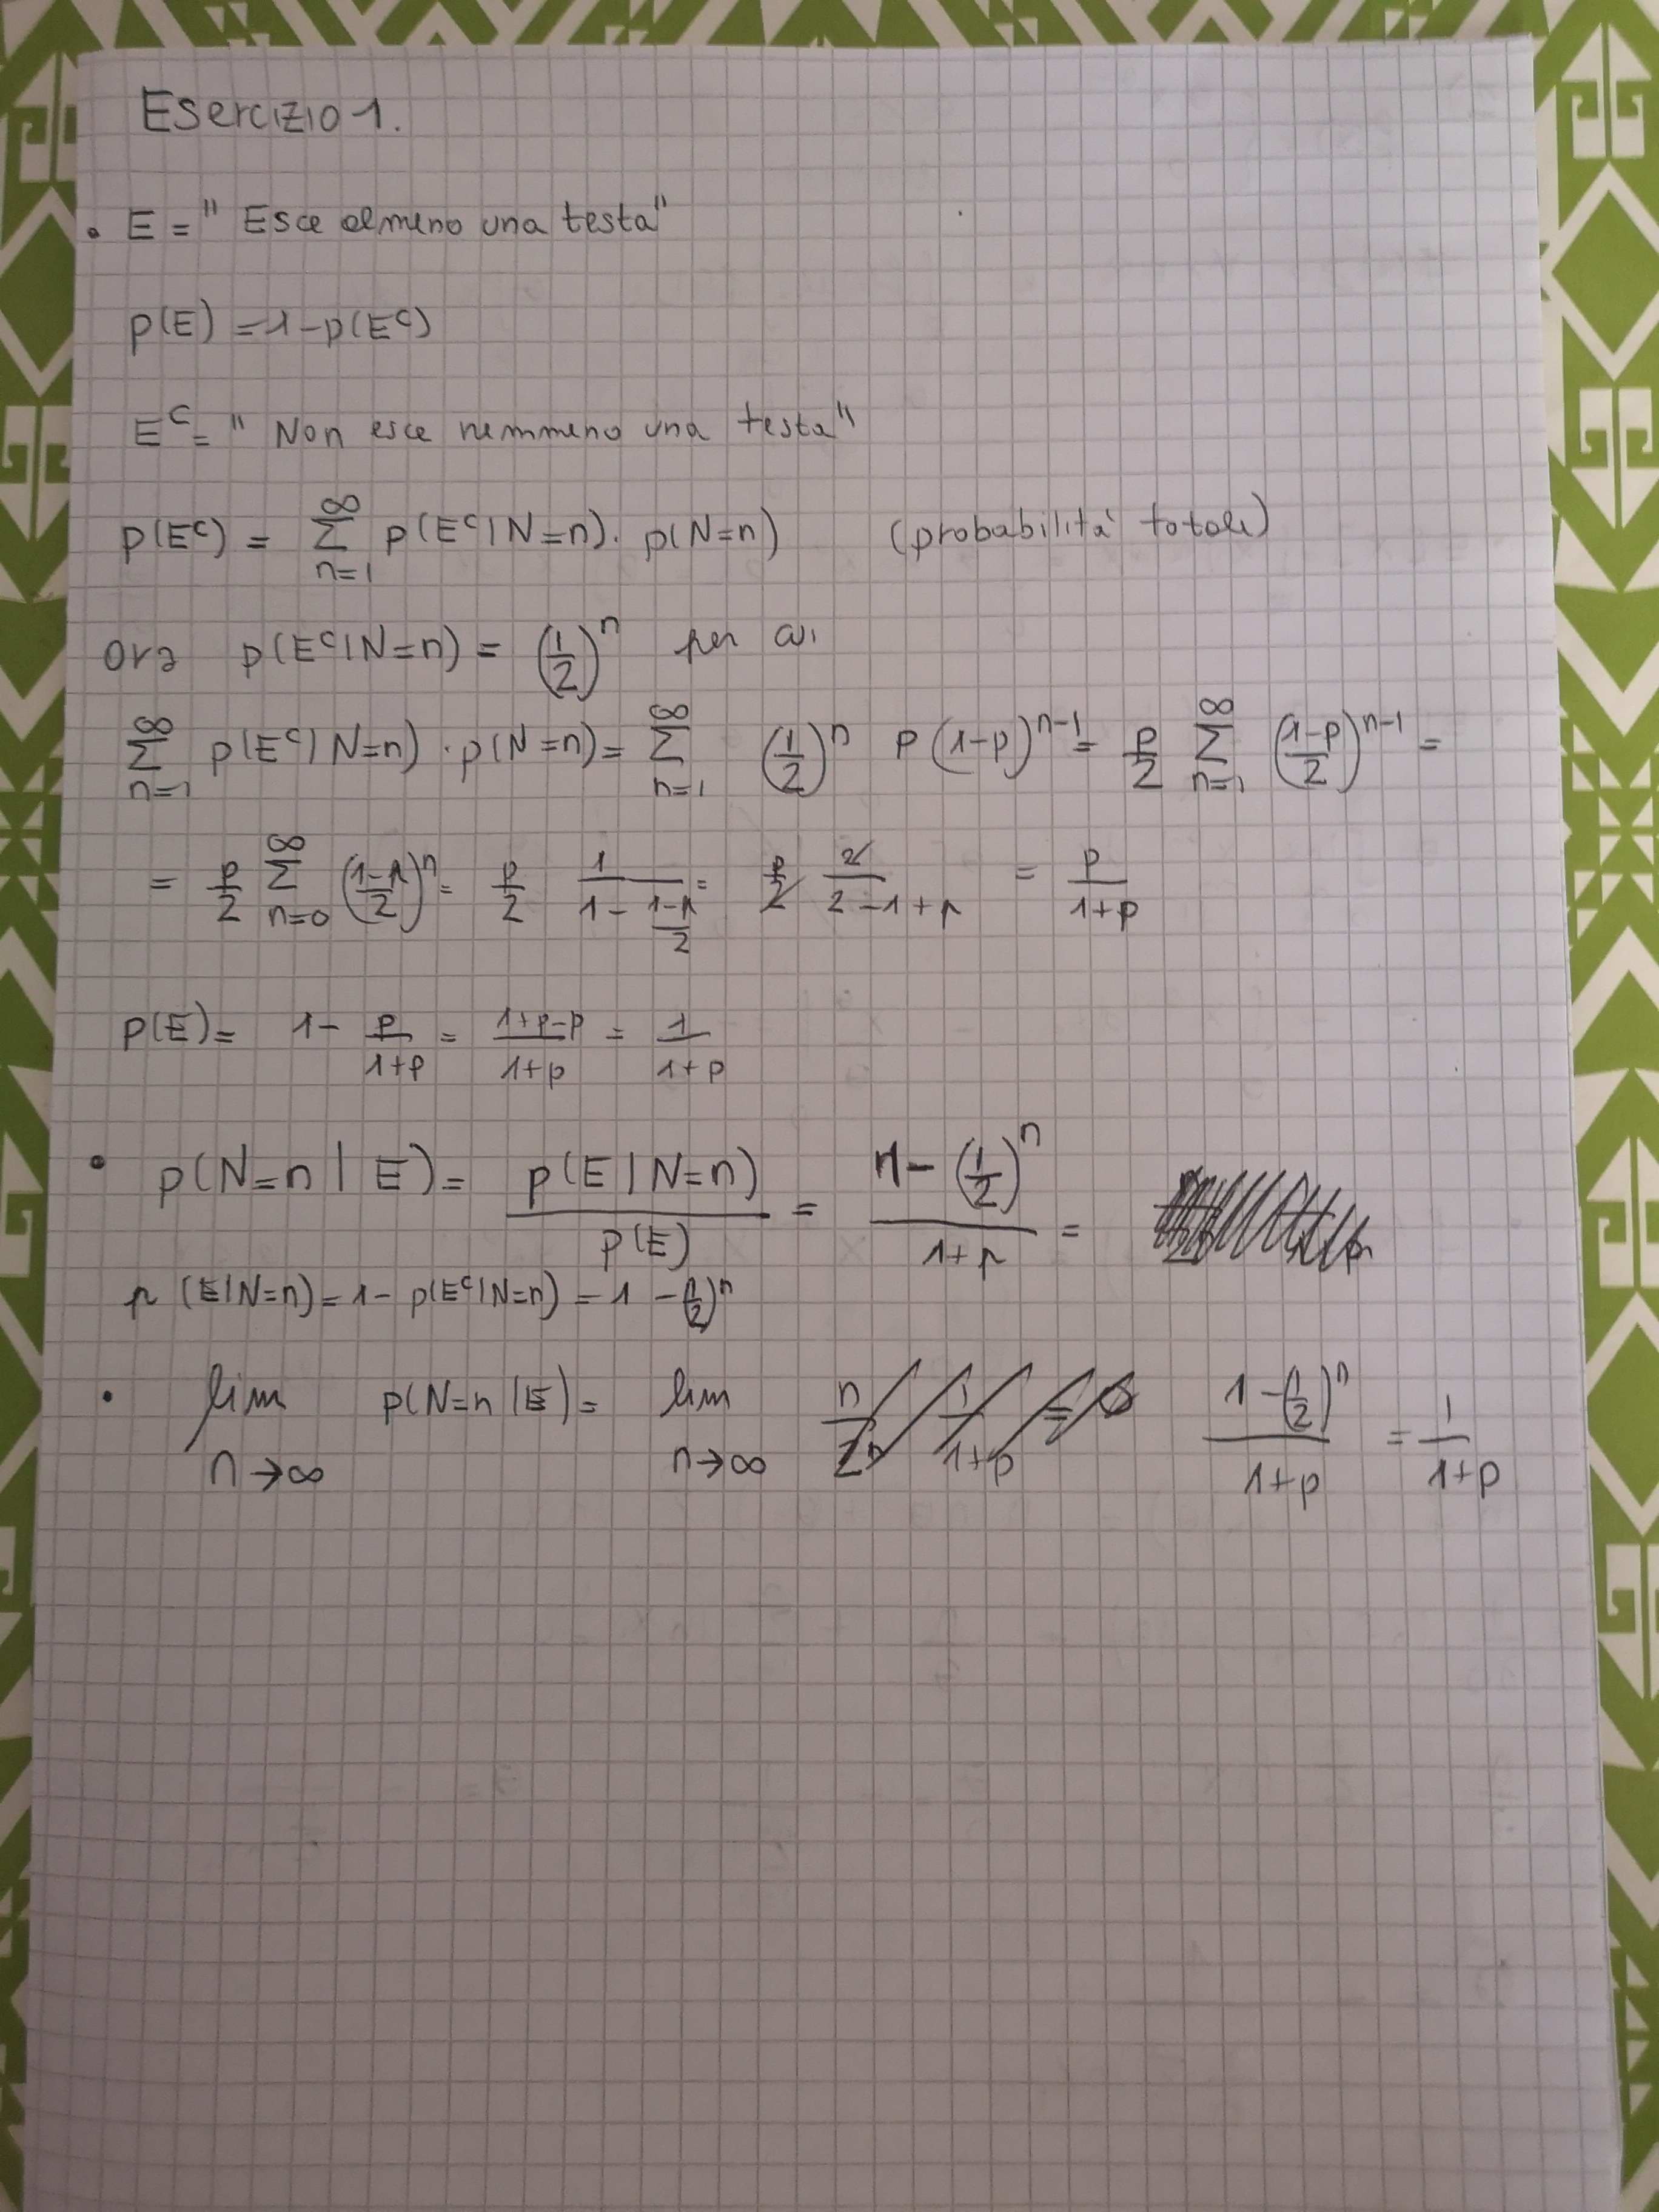 Esercizio 1.
• E = " Esce almeno una testa"
p(E) = 1 - p(E^c)
E^c = " Non esce nemmeno una testa"
p(E^c) = ∑_{n=1}^{∞} p(E^c | N=n) · p(N=n) (probabilità totale)
Ora p(E^c | N=n) = (1/2)^n per cui
∑_{n=1}^{∞} p(E^c | N=n) · p(N=n) = ∑_{n=1}^{∞} (1/2)^n p (1-p)^{n-1} = p/2 ∑_{n=1}^{∞} ((1-p)/2)^{n-1} =
= p/2 ∑_{n=0}^{∞} ((1-p)/2)^n = p/2 1/(1 - (1-p)/2) = p/2 2/(2-1+p) = p/(1+p)
p(E) = 1 - p/(1+p) = (1+p-p)/(1+p) = 1/(1+p)
• p(N=n | E) = p(E | N=n)/p(E) = (1 - (1/2)^n)/(1+p) =
p (E | N=n) = 1 - p(E^c | N=n) = 1 - (1/2)^n
• lim_{n→∞} p(N=n | E) = lim_{n→∞} n/2^n 1/(1+p) = 0 (1 - (1/2)^n)/(1+p) = 1/(1+p)